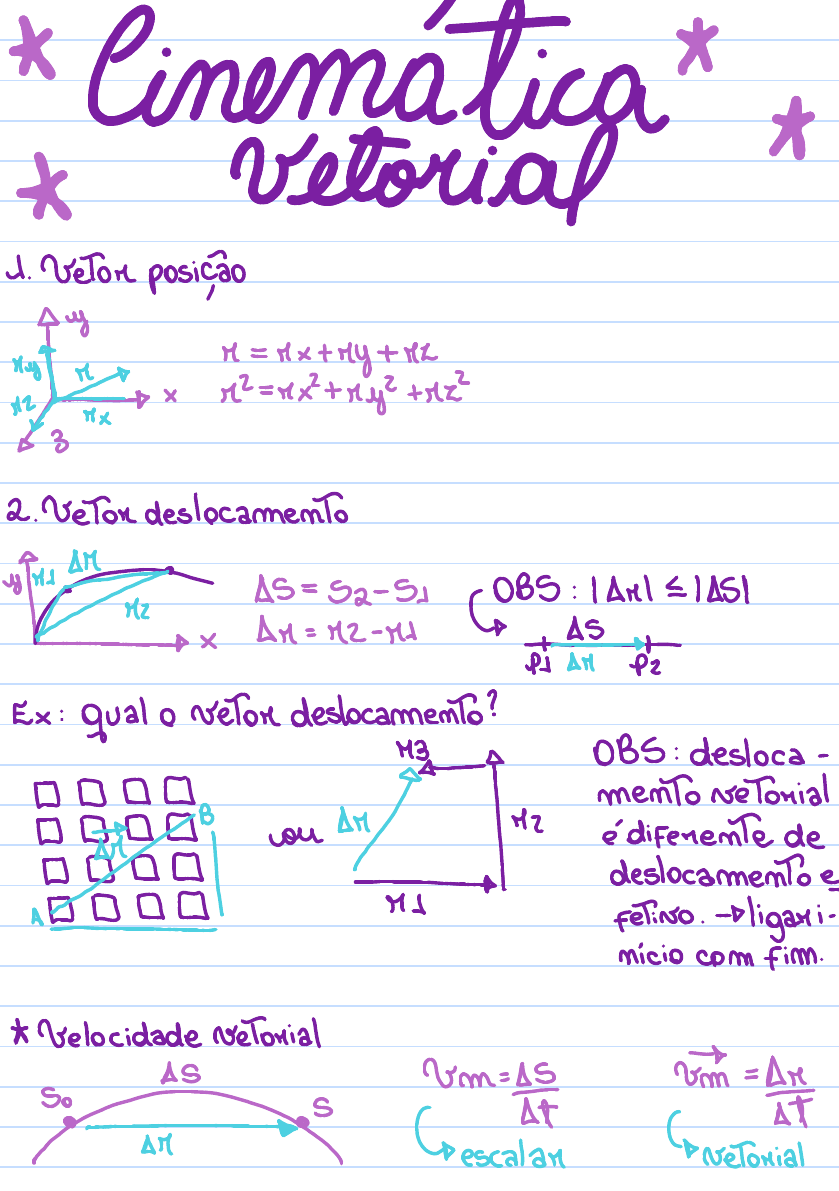 Cinemática
Vetorial
1. Vetor posição
y
ry
r
rz
x
rx
z
r = rx + ry + rz
r² = rx² + ry² + rz²
2. Vetor deslocamento
y
r1
Δr
r2
x
ΔS = S₂ - S₁
Δr = r2 - r1
OBS: |Δr| ≤ |ΔS|
ΔS
P1 Δr P2
Ex: qual o vetor deslocamento?
B
Δr
A
ou
r3
Δr
r2
r1
OBS: desloca -
mento vetorial
é diferente de
deslocamento e
fetivo. → ligar i-
nício com fim.
* Velocidade vetorial
ΔS
S₀
S
Δr
Vm = ΔS
Δt
escalar
Vm = Δr
Δt
vetorial